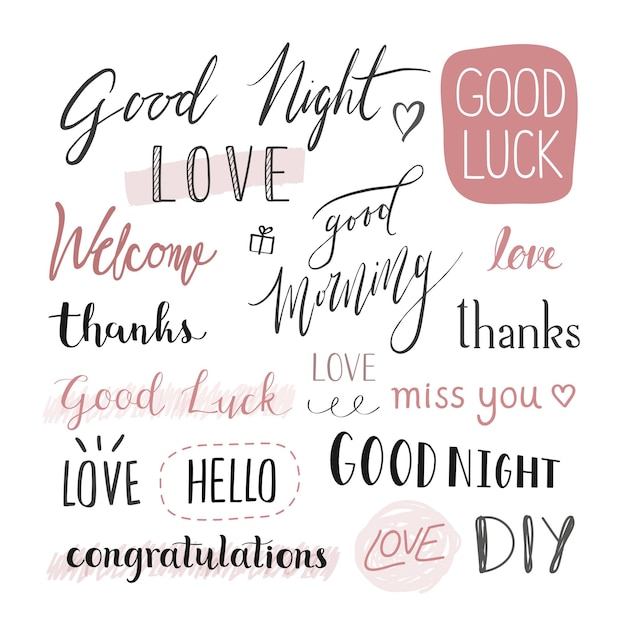 Good Night
GOOD
LUCK
LOVE
Welcome
good
Morning
love
thanks
thanks
Good Luck
LOVE
miss you
LOVE
HELLO
GOOD NIGHT
congratulations
LOVE
DIY